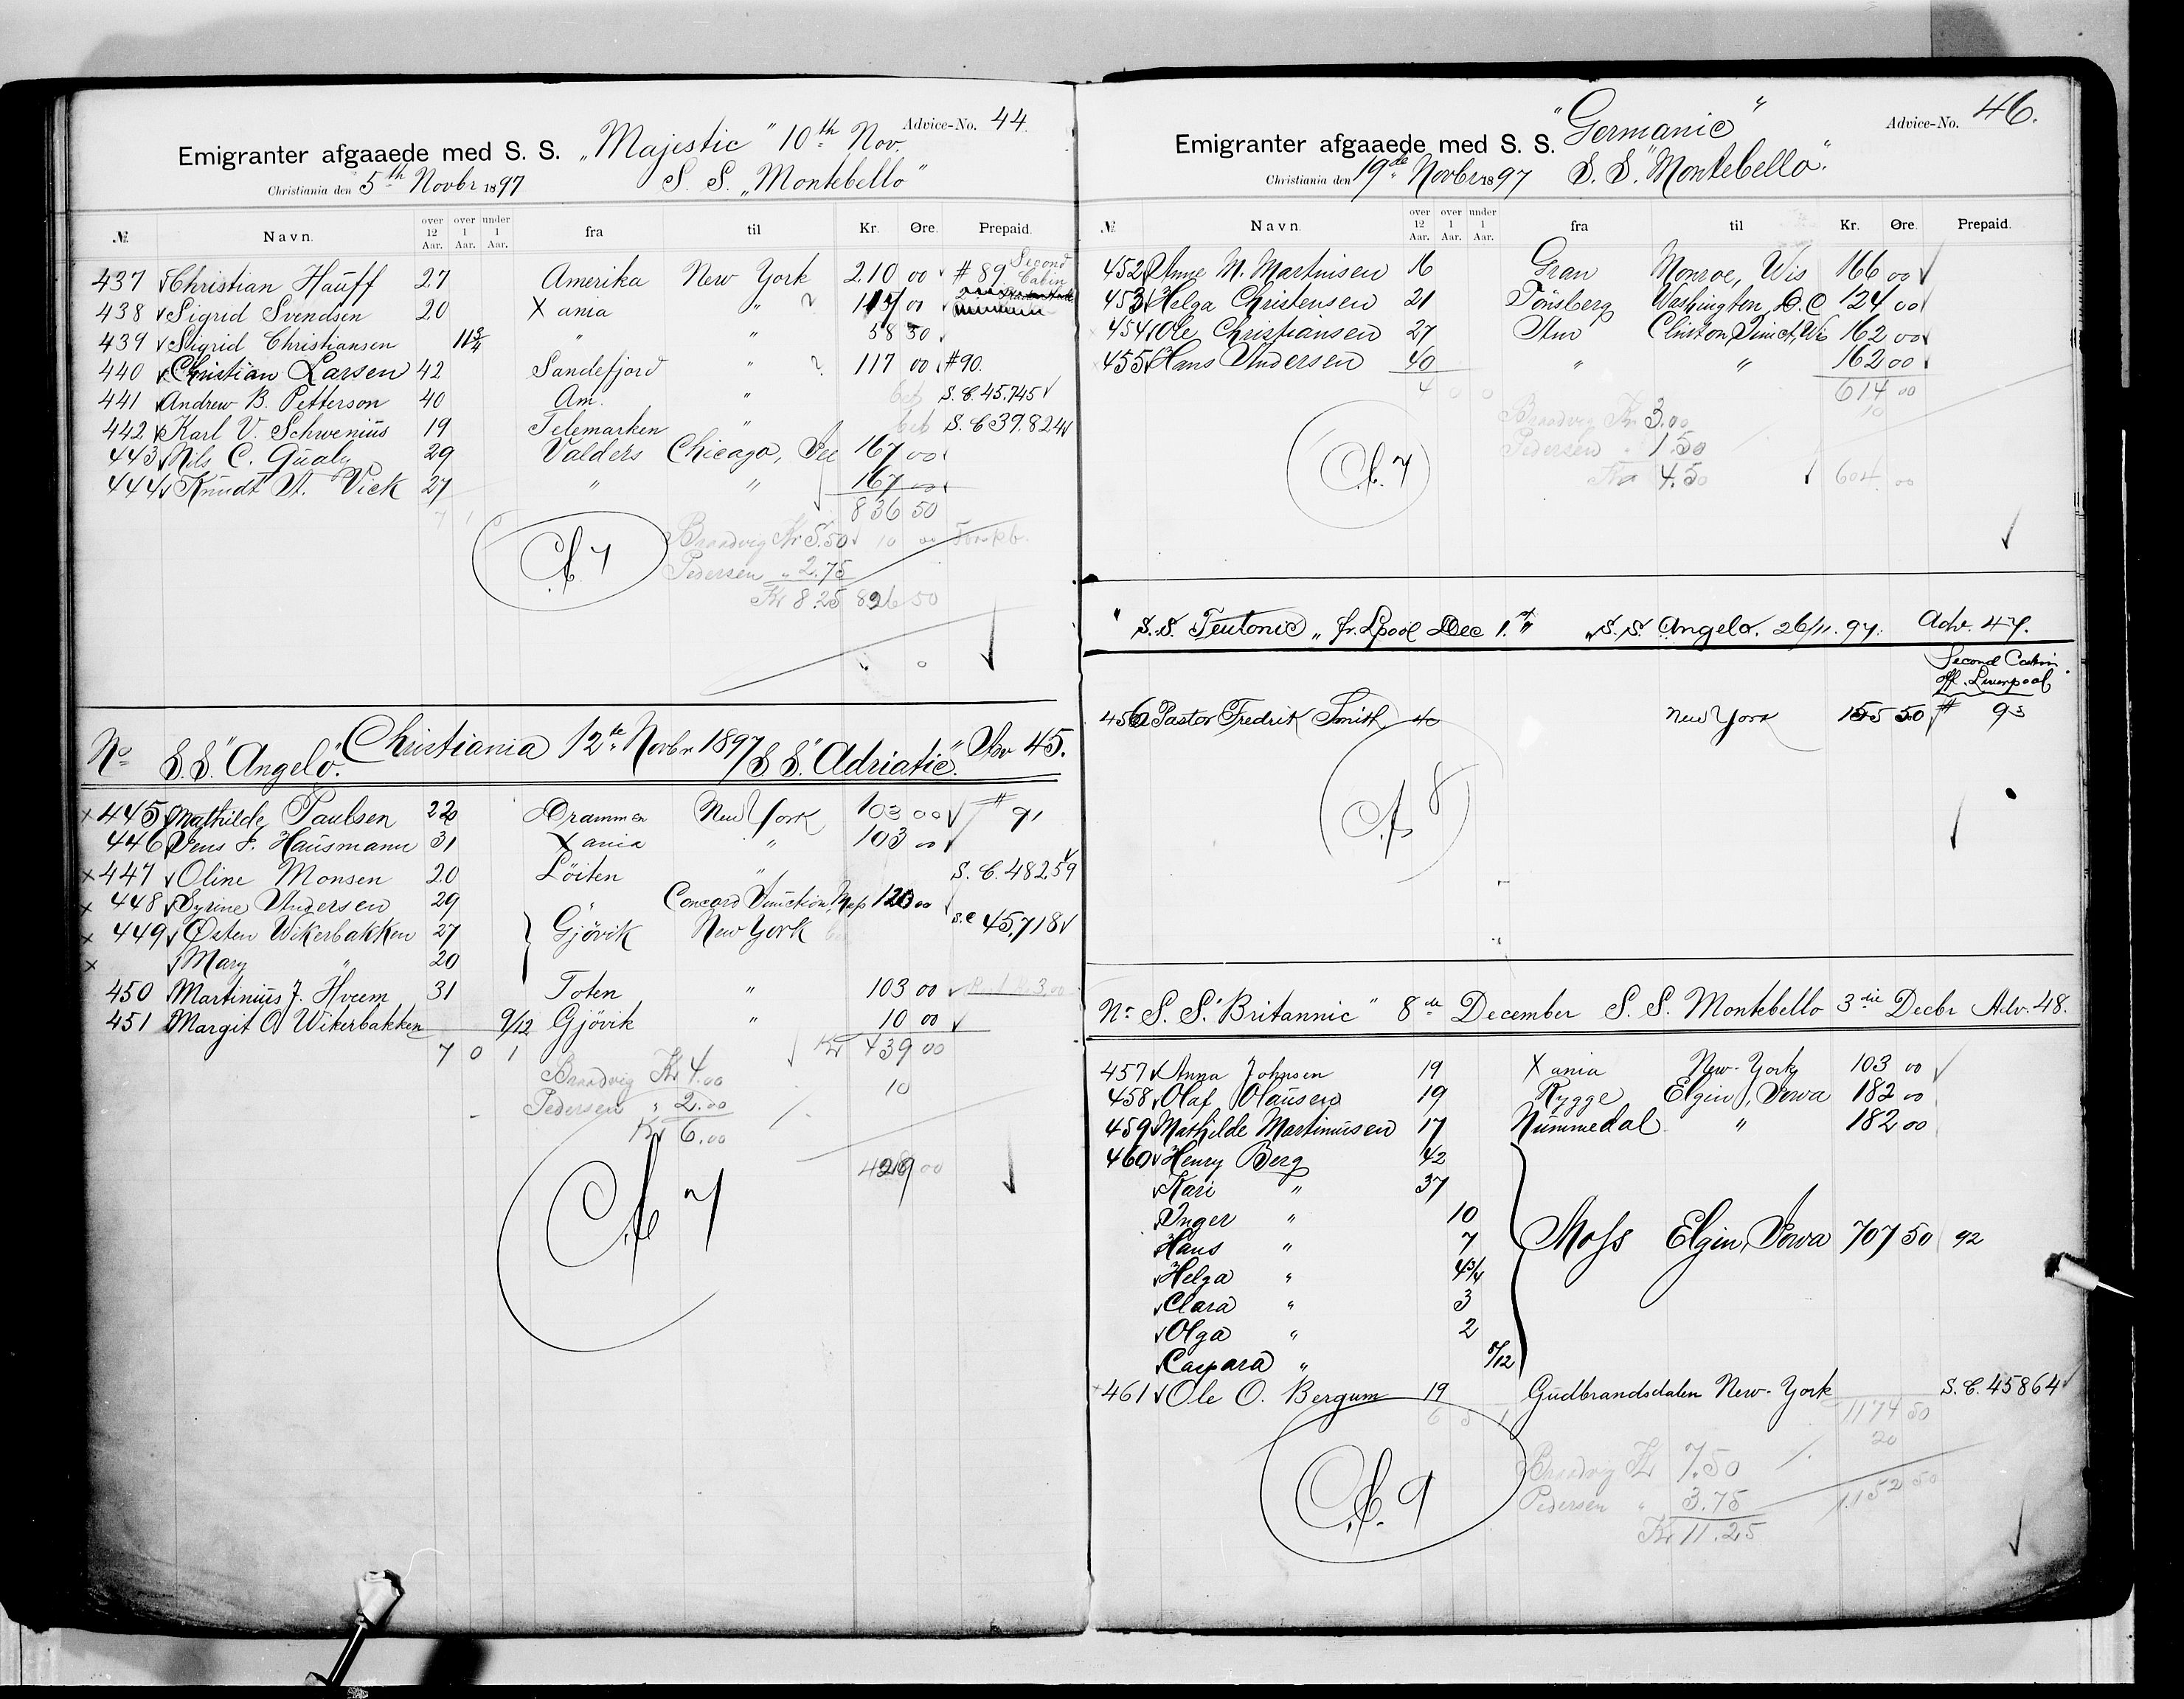 Advice-No. 44
Emigranter afgaaede med S. S. „Majestic" 10th Nov.
Christiania den 5th Novbr 1897 S. S. „Montebello"
№ Navn. over 12 Aar. over 1 Aar. under 1 Aar. fra til Kr. Øre. Prepaid.
437 Christian Hauff 27 Amerika New York 210 00 # 89 Second Cabin
438 Sigrid Svendsen 20 Xania " 117 00
439 Sigrid Christiansen 11¾ " " 58 50
440 Christian Larsen 42 Sandefjord " 117 00 #90.
441 Andrew B. Petterson 40 Am. " S.C. 45.745
442 Karl V. Schwenius 19 Telemarken " S.C 39.824
443 Nils C. Gualy 29 Valders Chicago, Ill 167 00
444 Knudt A. Vick 27 " " 167 00
7 1 836 50
Braadvig Kr 5.50 10 00
Pedersen " 2.75
Kr 8.25 826 50
No S.S. "Angelo". Christiania 12te Novbr 1897 / S S. "Adriatic". Adv 45.
445 Mathilde Paulsen 22 Drammen New York 103 00 # 91
446 Jens F. Hausmann 31 Xania " 103 00
447 Oline Monsen 20 Löiten " S.C. 48259
448 Syrine Andersen 29 " Concord Junction, Mass 120 00
449 Østen Wikerbakken 27 Gjövik New York S.C 45,718
Mary " 20
450 Martinius J. Hveem 31 Toten " 103 00
451 Margit O. Wikerbakken 9/12 Gjövik " 10 00
7 0 1 Kr 439 00
Braadvig Kr 4.00 10
Pedersen " 2.00
Kr 6.00
429 00
Advice-No. 46.
Emigranter afgaaede med S. S. "Germanic"
Christiania den 19de Novbr 1897 S. S. "Montebello".
№ Navn over 12 Aar. over 1 Aar. under 1 Aar. fra til Kr. Øre. Prepaid.
452 Anne M. Martinisen 16 Gran Monroe, Wis 166 00
453 Helga Christensen 21 Tönsberg Washington, D.C 124 00
454 Ole Christiansen 27 Clinton Junct, Wis 162 00
455 Hans Andersen 40 " " 162 00
4 0 0 614 00
Braadvig Kr. 3.00 10
Pedersen " 1.50
Kr 4.50 604 00
" S.S. Teutonic „ fr. Lpool Dec 1st" „S.S. Angelo. 26/11. 97. Adv. 47.
Second Cabin
ff. Liverpool
456 Pastor Fredrik Smith 40 New York 155 50 # 93
Nr. S. S. "Britannic" 8de December S. S. Montebello 3die Decbr Adv. 48.
457 Anna Johnsen 19 Xania New-York 103 00
458 Olaf Olausen 19 Rygge Elgin, Iowa 182 00
459 Mathilde Martinusen 17 Nummedal " 182 00
460 Henry Berg 42
Kari " 37
Inger " 10
Hans " 7 Moss Elgin, Iowa 707 50 92
Helga " 4¾
Clara " 3
Olga " 2
Caspara "
461 Ole O. Bergum 19 Gudbrandsdalen New-York S.C. 45864
6 5 1 1174 50
20
Braadvig Kr 7.50
Pedersen " 3.75 1152 50
Kr 11.25